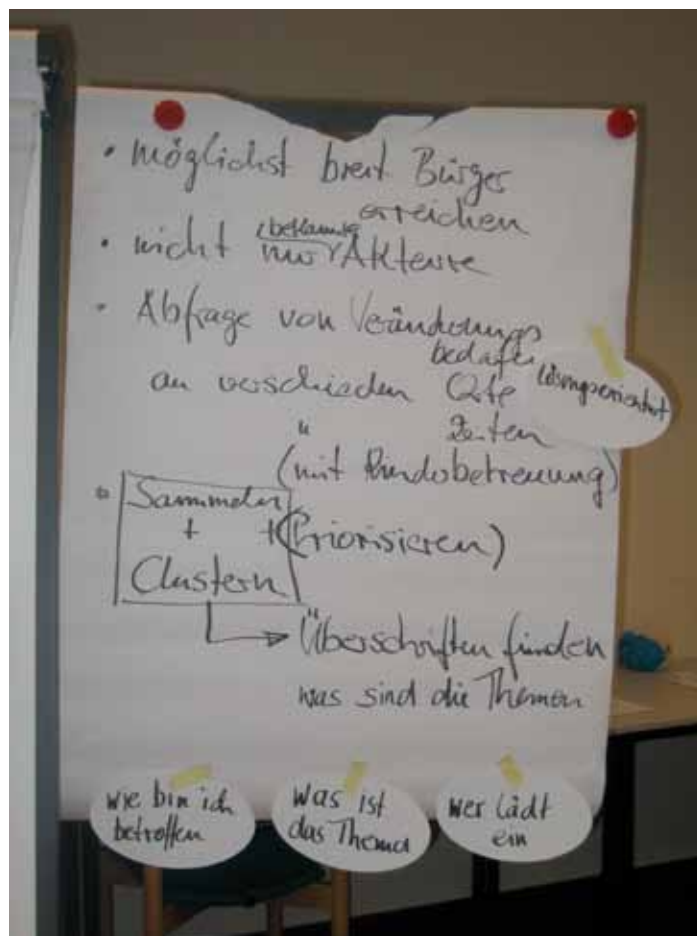 • möglichst breit Bürger
erreichen
• nicht nur (bekannte) Akteure
• Abfrage von Veränderungs
bedarfen
an verschieden Orte
" Zeiten
(mit Kinderbetreuung)
lösungsorientiert
• Sammeln
+ + (Priorisieren)
Clustern
→ Überschriften finden
was sind die Themen
wie bin ich
betroffen
was ist
das Thema
wer lädt
ein